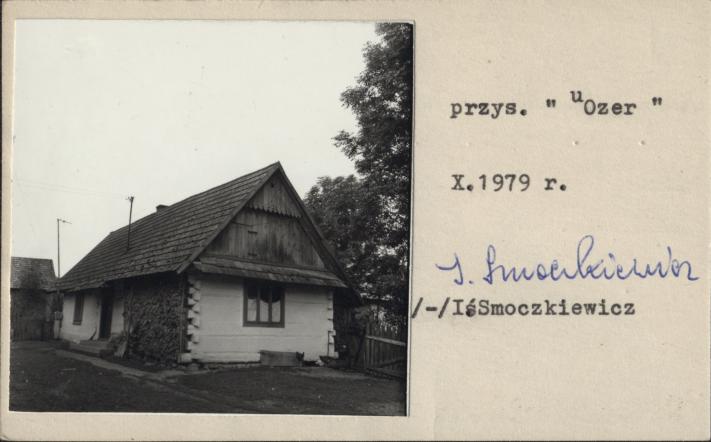 przys. " uOzer "
X.1979 r.
I. Smoczkiewicz
/-/IśSmoczkiewicz